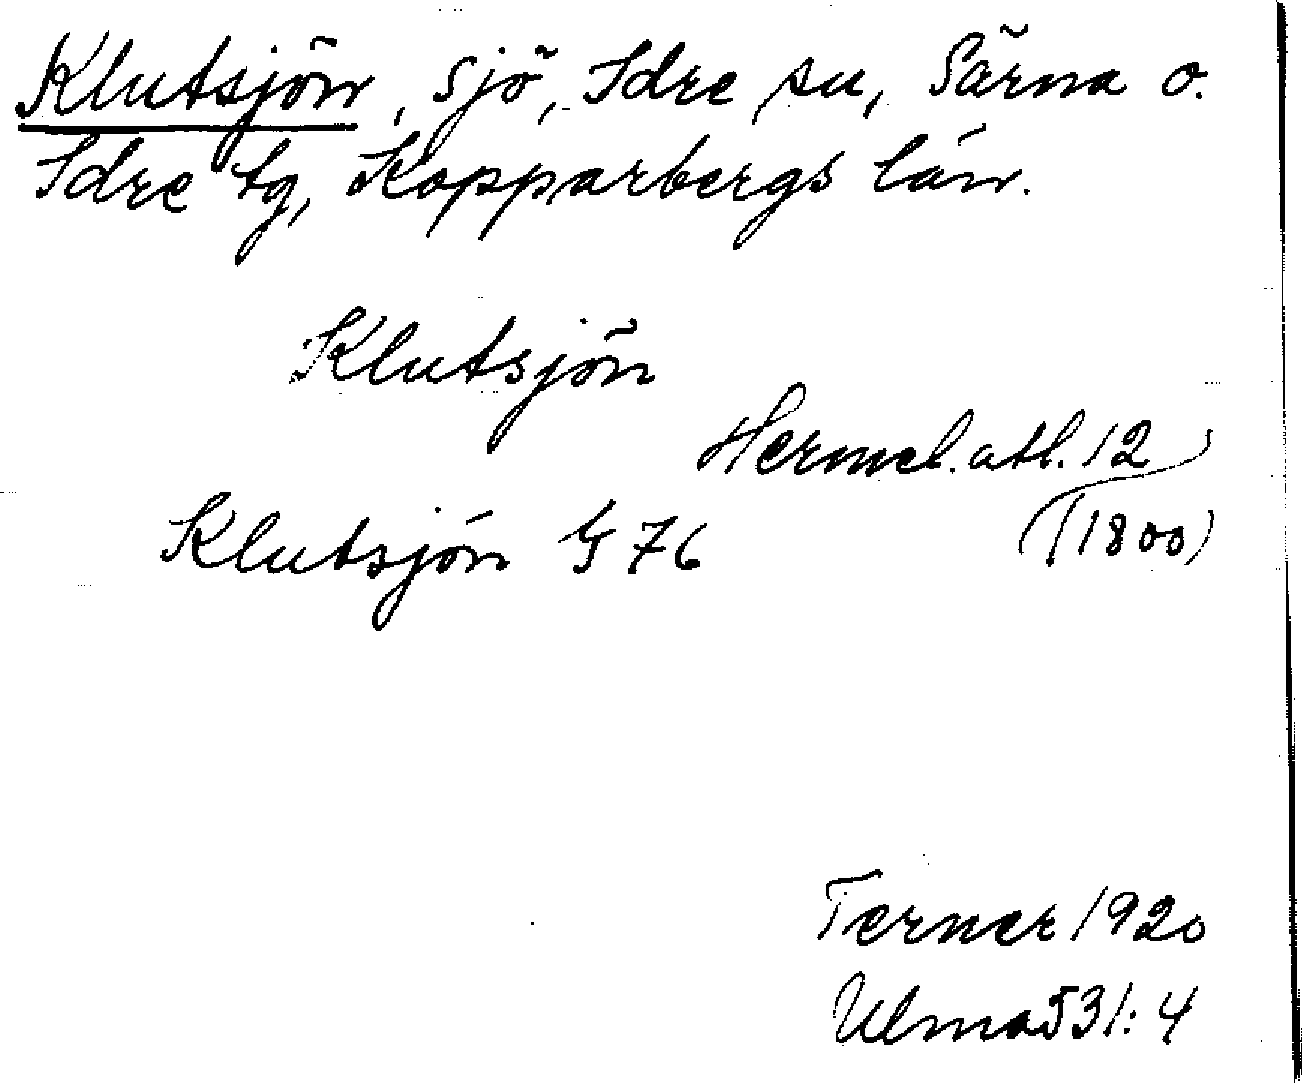 Klutsjön, sjö, Idre sn, Särna o.
Idre tg, Kopparbergs län.
Klutsjön
Hermel. atl. 12
(1800)
Klutsjön G 76
Terner 1920
Ulma 531:4